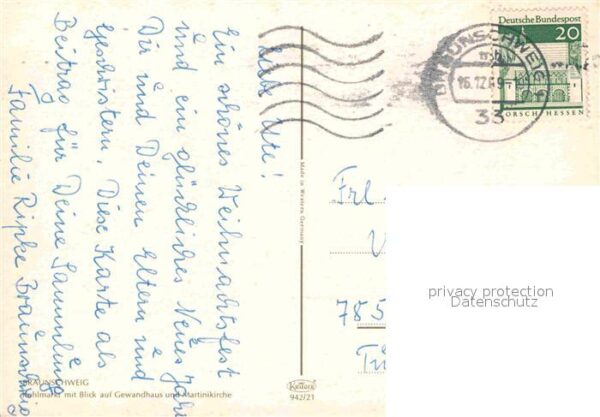 Liebe Ute!
Ein schönes Weihnachtsfest
und ein glückliches Neues Jahr
Dir und Deinen Eltern und
Geschwistern. Diese Karte als
Beitrag für Deine Sammlung
Familie Ripke Braunschweig
BRAUNSCHWEIG
Kohlmarkt mit Blick auf Gewandhaus und Martinikirche
Made in Western Germany
Krüger
942/21
Deutsche Bundespost
20
LORSCH HESSEN
BRAUNSCHWEIG
16.12.69
33
Frl
785
privacy protection
Datenschutz